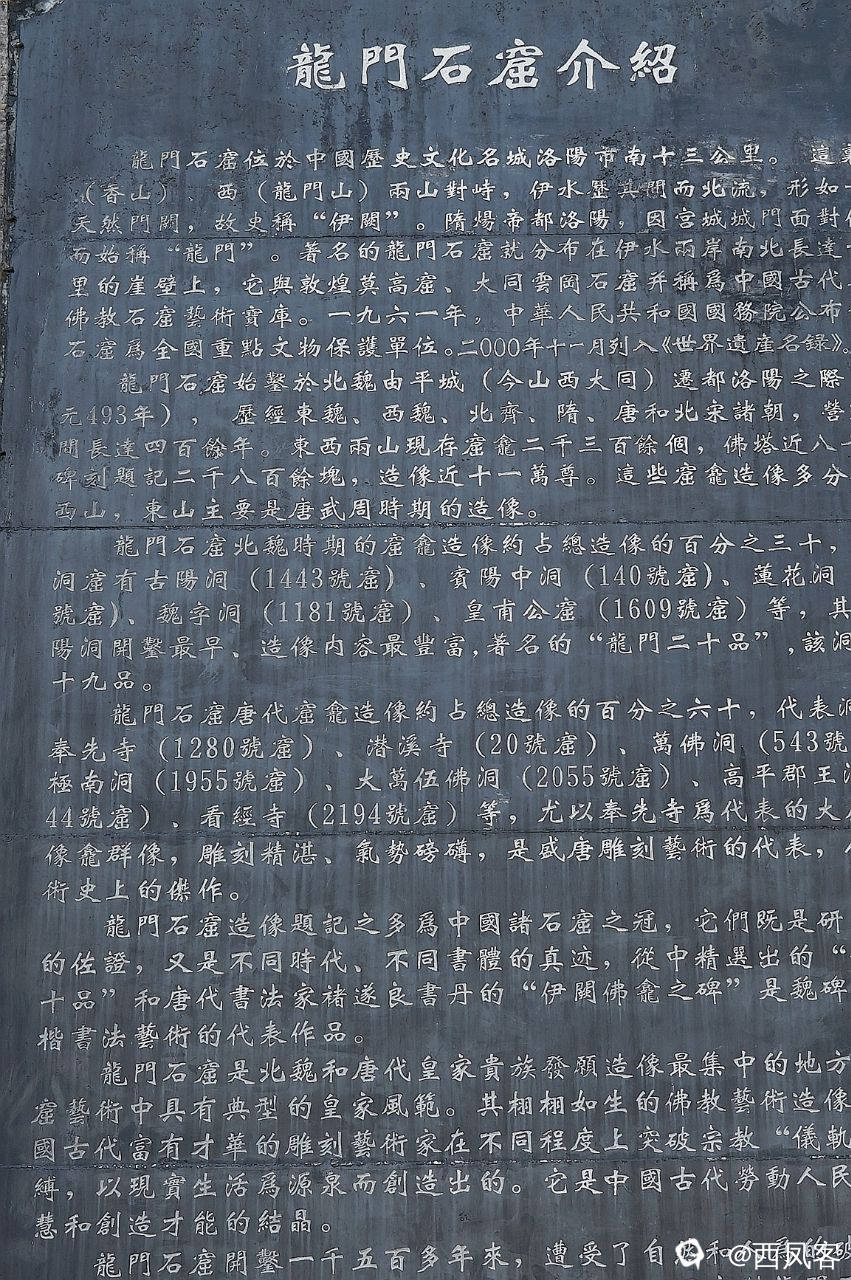 龍門石窟介紹
龍門石窟位於中國歷史文化名城洛陽市南十三公里。 這裏
(香山) 西(龍門山)兩山對峙，伊水歷其間而北流，形如一
天然門闕，故史稱“伊闕”。隋煬帝都洛陽，因宮城城門面對伊
而始稱“龍門”。著名的龍門石窟就分布在伊水兩岸南北長達一
里的崖壁上，它與敦煌莫高窟、大同雲岡石窟并稱爲中國古代
佛教石窟藝術寶庫。一九六一年，中華人民共和國國務院公布
石窟爲全國重點文物保護單位。二000年十一月列入《世界遺産名錄》。
龍門石窟始鑿於北魏由平城(今山西大同)遷都洛陽之際
元493年)， 歷經東魏、西魏、北齊、隋、唐和北宋諸朝，營
間長達四百餘年。東西兩山現存窟龕二千三百餘個，佛塔近八十
碑刻題記二千八百餘塊，造像近十一萬尊。這些窟龕造像多分
西山，東山主要是唐武周時期的造像。
龍門石窟北魏時期的窟龕造像約占總造像的百分之三十，
洞窟有古陽洞(1443號窟)、賓陽中洞(140號窟)、蓮花洞
號窟)、魏字洞(1181號窟)、皇甫公窟(1609號窟)等，其
陽洞開鑿最早、造像内容最豐富,著名的“龍門二十品”,該洞
十九品。
龍門石窟唐代窟龕造像約占總造像的百分之六十，代表洞
奉先寺(1280號窟)、潜溪寺(20號窟)、萬佛洞(543號
極南洞(1955號窟)、大萬伍佛洞(2055號窟)、高平郡王洞
44號窟)、看經寺(2194號窟)等，尤以奉先寺爲代表的大
像龕群像，雕刻精湛、氣勢磅礴，是盛唐雕刻藝術的代表，
術史上的傑作。
龍門石窟造像題記之多爲中國諸石窟之冠，它們既是研
的佐證，又是不同時代、不同書體的真迹，從中精選出的“
十品”和唐代書法家褚遂良書丹的“伊闕佛龕之碑”是魏碑
楷書法藝術的代表作品。
龍門石窟是北魏和唐代皇家貴族發願造像最集中的地方
窟藝術中具有典型的皇家風範。其栩栩如生的佛教藝術造像
國古代富有才華的雕刻藝術家在不同程度上突破宗教“儀軌
縛，以現實生活爲源泉而創造出的。它是中國古代勞動人民
慧和創造才能的結晶。
龍門石窟開鑿一千五百多年來，遭受了自然和人爲的破
@西凤客